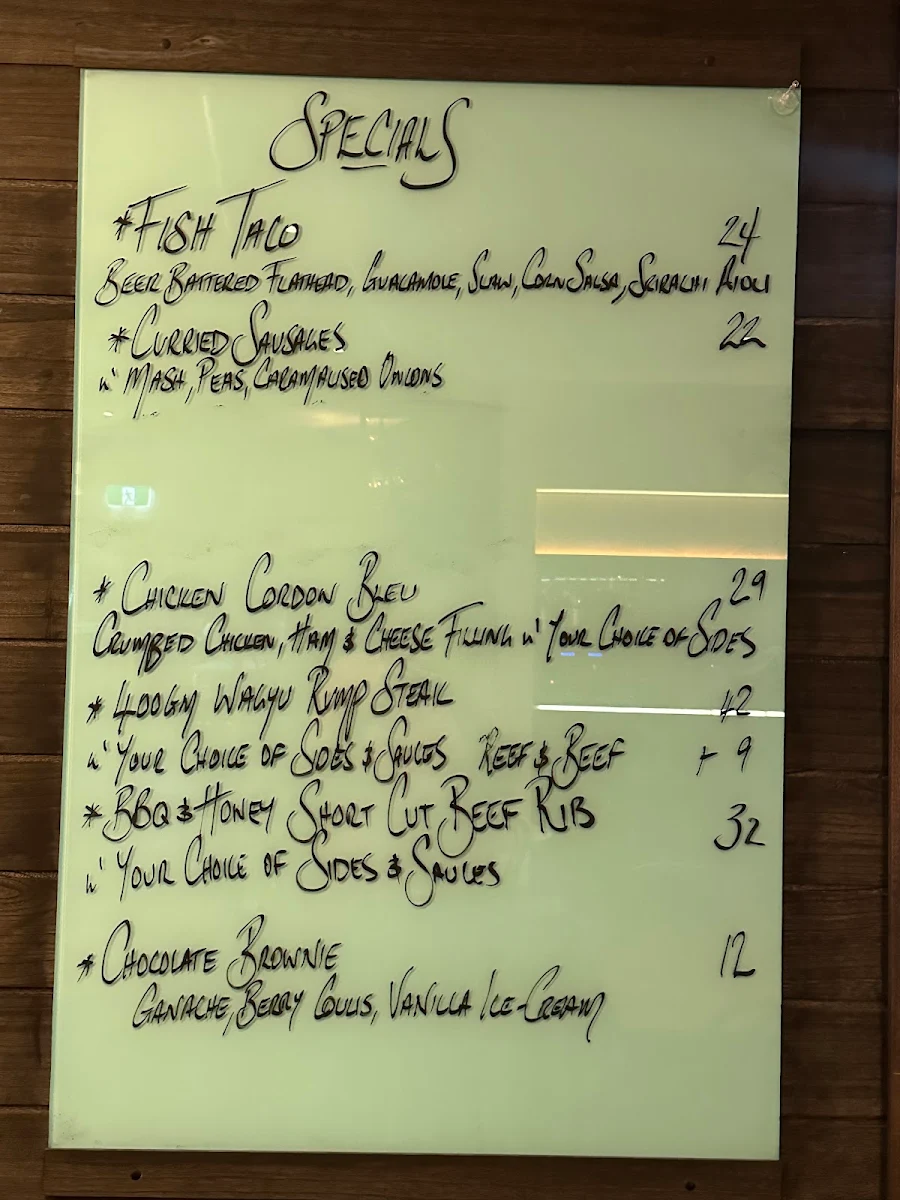 SPECIALS
*FISH TACO 24
BEER BATTERED FLATHEAD, GUACAMOLE, SLAW, CORN SALSA, SRIRACHI AIOLI
*CURRIED SAUSAGES 22
w' MASH, PEAS, CARAMALISED ONIONS
* CHICKEN CORDON BLEU 29
CRUMBED CHICKEN, HAM & CHEESE FILLING w' YOUR CHOICE OF SIDES
* 400GM WAGYU RUMP STEAK 42
w' YOUR CHOICE OF SIDES & SAUCES REEF & BEEF + 9
* BBQ & HONEY SHORT CUT BEEF RIB 32
w' YOUR CHOICE OF SIDES & SAUCES
* CHOCOLATE BROWNIE 12
GANACHE, BERRY COULIS, VANILLA ICE-CREAM